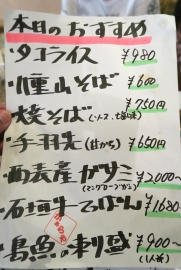 本日のおすすめ
・タコライス ¥980
・八重山そば ¥600
・焼そば(ソース、塩味) ¥750円
・手羽先(甘から) ¥650円
・西表産ガサミ ¥2,000〜
(マングローブガニ)
・石垣牛そぼろごはん ¥1680
・島魚の刺盛 ¥900〜
(1人前)